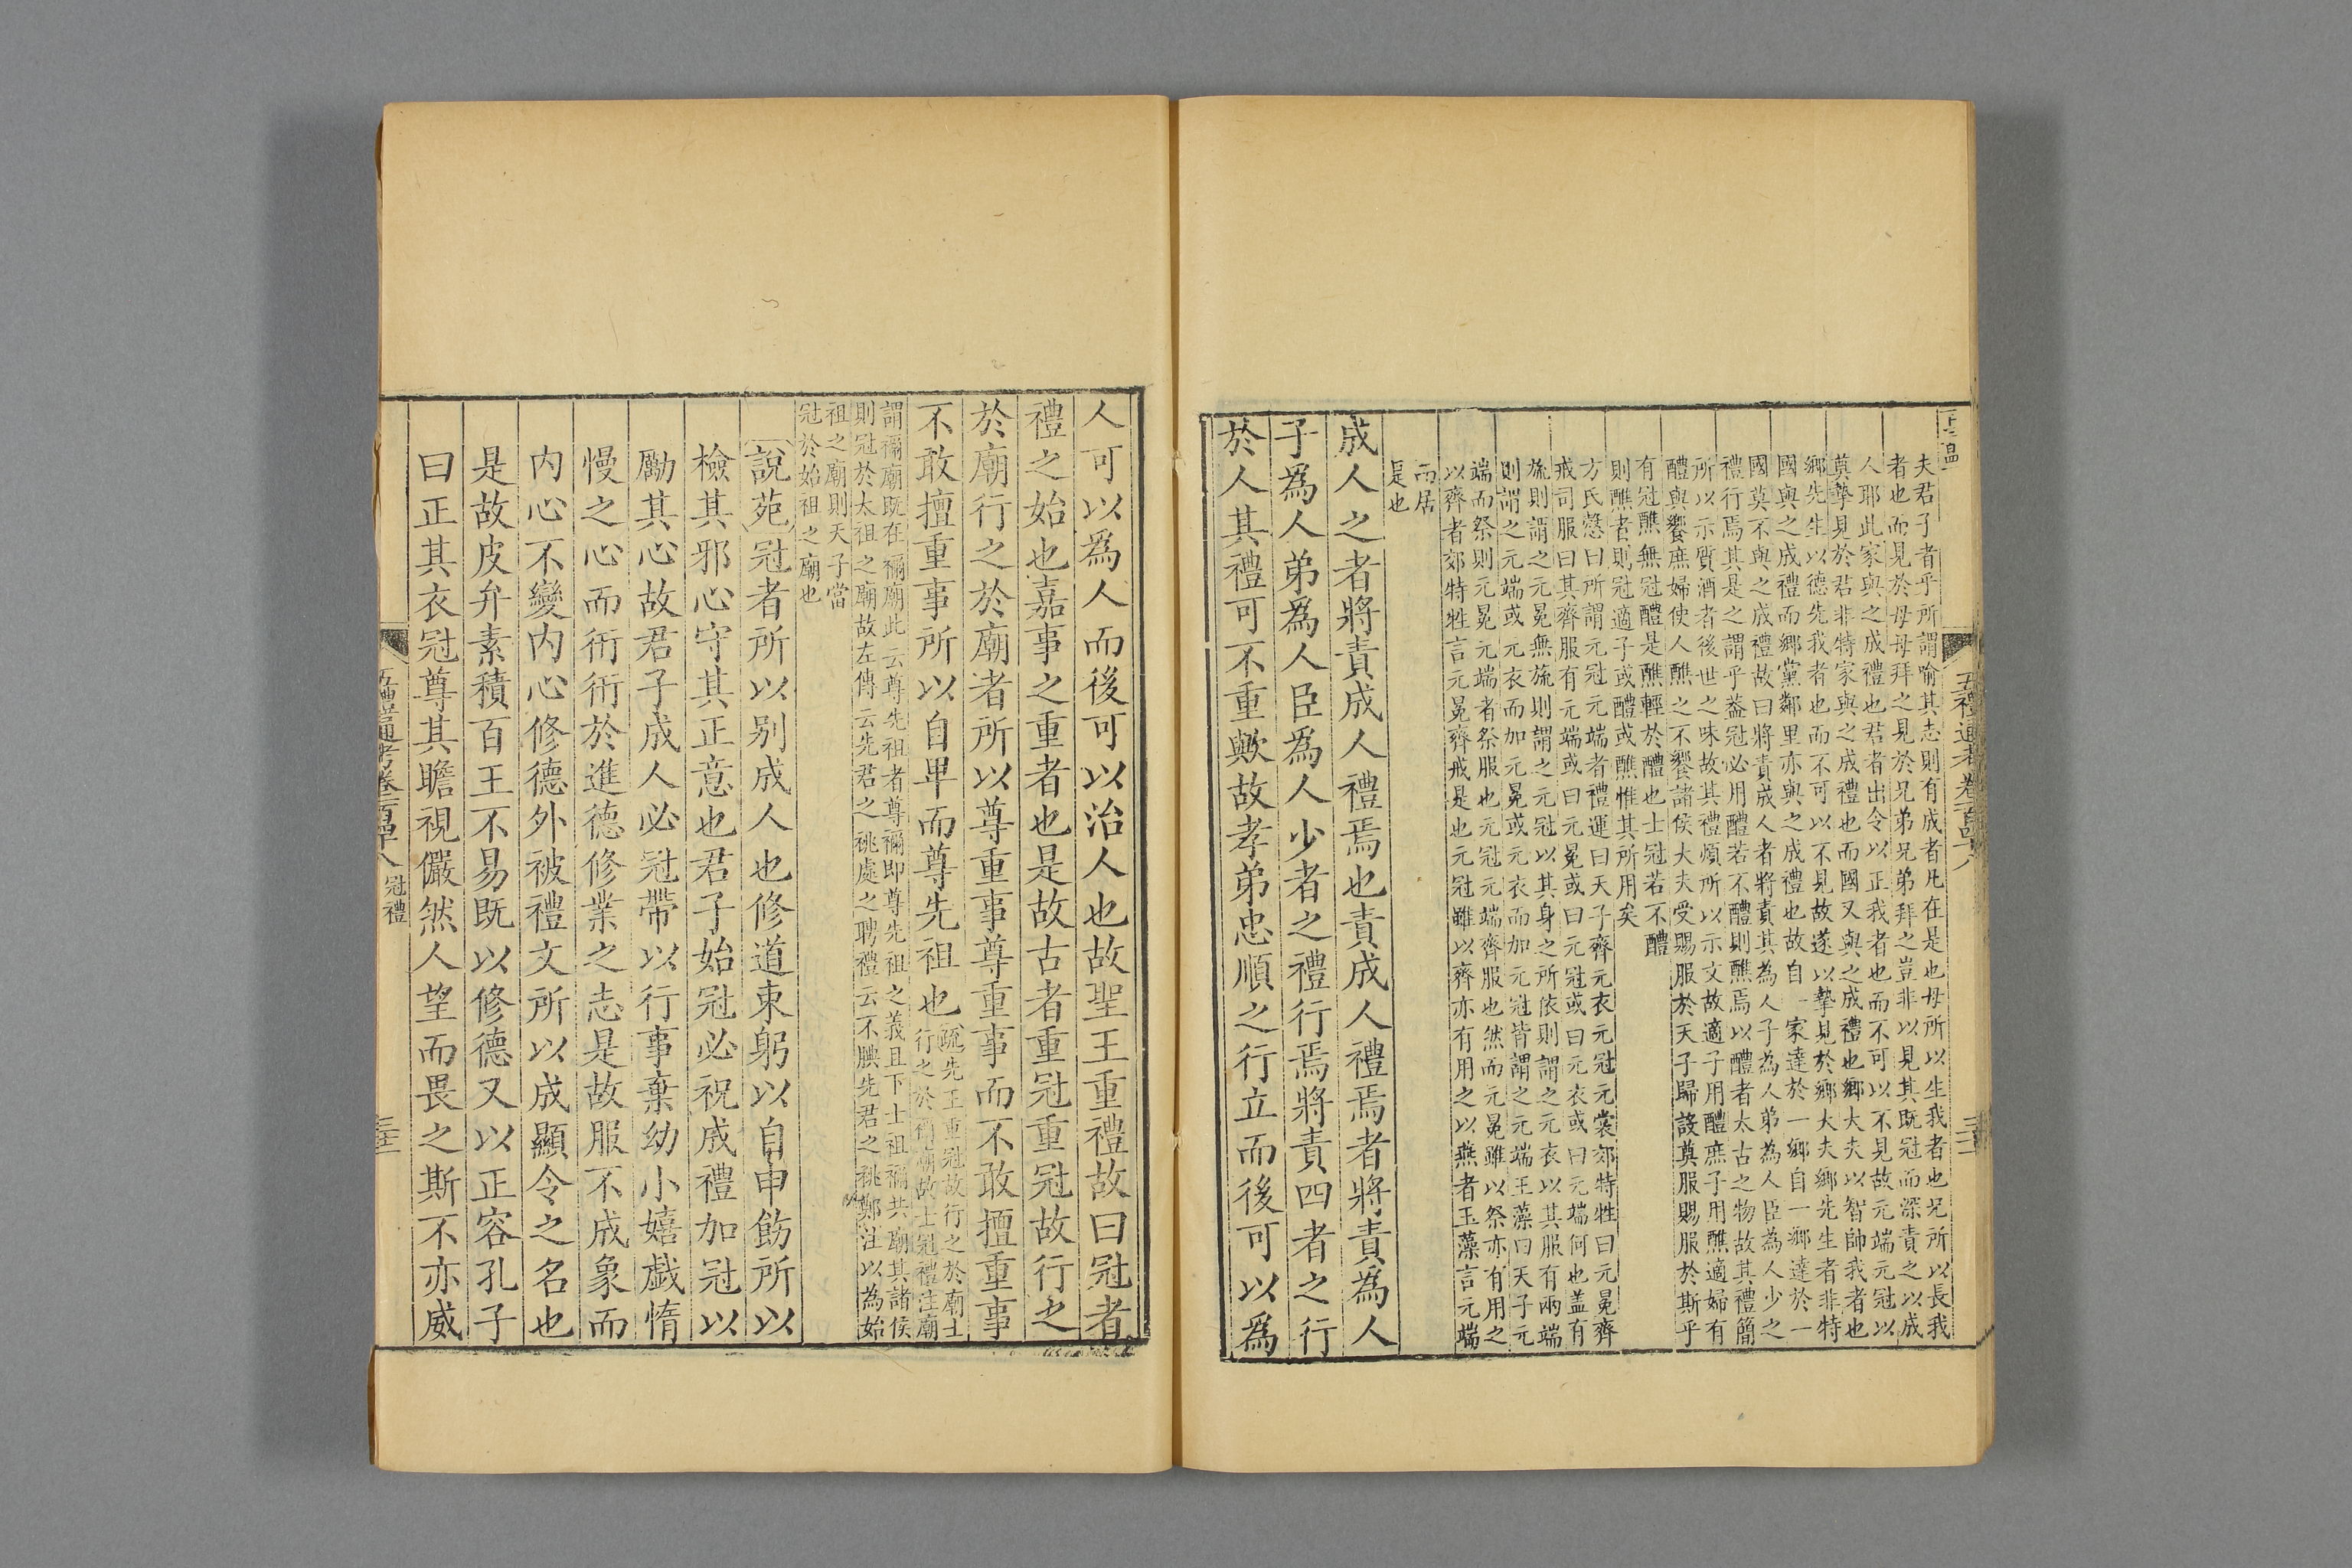 夫君子者乎所謂喻其志則有成者凡在是也母所以生我者也兄所以長我
者也而見於母母拜之見於兄弟兄弟拜之豈非以見其既冠而深責之以成
人耶此家與之成禮也君者出令以正我者也而不可以不見故元端元冠以
奠摯見於君非特家與之成禮也而國又與之成禮也鄉大夫以智帥我者也
鄉先生以德先我者也而不可以不見故遂以摯見於鄉大夫鄉先生者非特
國與之成禮而鄉黨鄰里亦與之成禮也故自一家達於一鄉自一鄉達於一
國莫不與之成禮故曰將責成人者將責其為人子為人弟為人臣為人少之
禮行焉其是之謂乎蓋冠必用醴若不醴則醮焉以醴者太古之物故其禮簡
所以示質酒者後世之味故其禮煩所以示文故適子用醴庶子用醮適婦有
醴與饗庶婦使人醮之不饗諸侯大夫受賜服於天子歸設奠服賜服於斯乎
有冠醮無冠醴是醮輕於醴也士冠若不醴
則醮者則冠適子或醴或醮惟其所用矣
方氏慤曰所謂元冠元端者禮運曰天子齊元衣元冠元裳郊特牲曰元冕齊
戒司服曰其齊服有元端或曰元冕或曰元冠或曰元衣或曰元端何也蓋有
旒則謂之元冕無旒則謂之元冠以其身之所依則謂之元衣以其服有兩端
則謂之元端或元衣而加元冕或元衣而加元冠皆謂之元端玉藻曰天子元
端而祭則元冕元端者祭服也元冠元端齊服也然而元冕雖以祭亦有用之
以齊者郊特牲言元冕齊戒是也元冠雖以齊亦有用之以燕者玉藻言元端
而居
是也
成人之者將責成人禮焉也責成人禮焉者將責為人
子爲人弟爲人臣爲人少者之禮行焉將責四者之行
於人其禮可不重歟故孝弟忠順之行立而後可以爲
五禮通考卷一百四十八
人可以爲人而後可以治人也故聖王重禮故曰冠者
禮之始也嘉事之重者也是故古者重冠重冠故行之
於廟行之於廟者所以尊重事尊重事而不敢擅重事
不敢擅重事所以自卑而尊先祖也疏先王重冠故行之於廟士
行之於禰廟故士冠禮注廟
謂禰廟既在禰廟此云尊先祖者尊禰即尊先祖之義且下士祖禰共廟其諸侯
則冠於太祖之廟故左傳云先君之祧處之聘禮云不腆先君之祧鄭注以為始
祖之廟則天子當
冠於始祖之廟也
說苑冠者所以别成人也修道束躬以自申飭所以
檢其邪心守其正意也君子始冠必祝成禮加冠以
勵其心故君子成人必冠帶以行事棄幼小嬉戲惰
慢之心而衎衎於進德修業之志是故服不成象而
内心不變内心修德外被禮文所以成顯令之名也
是故皮弁素積百王不易既以修德又以正容孔子
曰正其衣冠尊其瞻視儼然人望而畏之斯不亦威
五禮通考卷一百四十八 冠禮